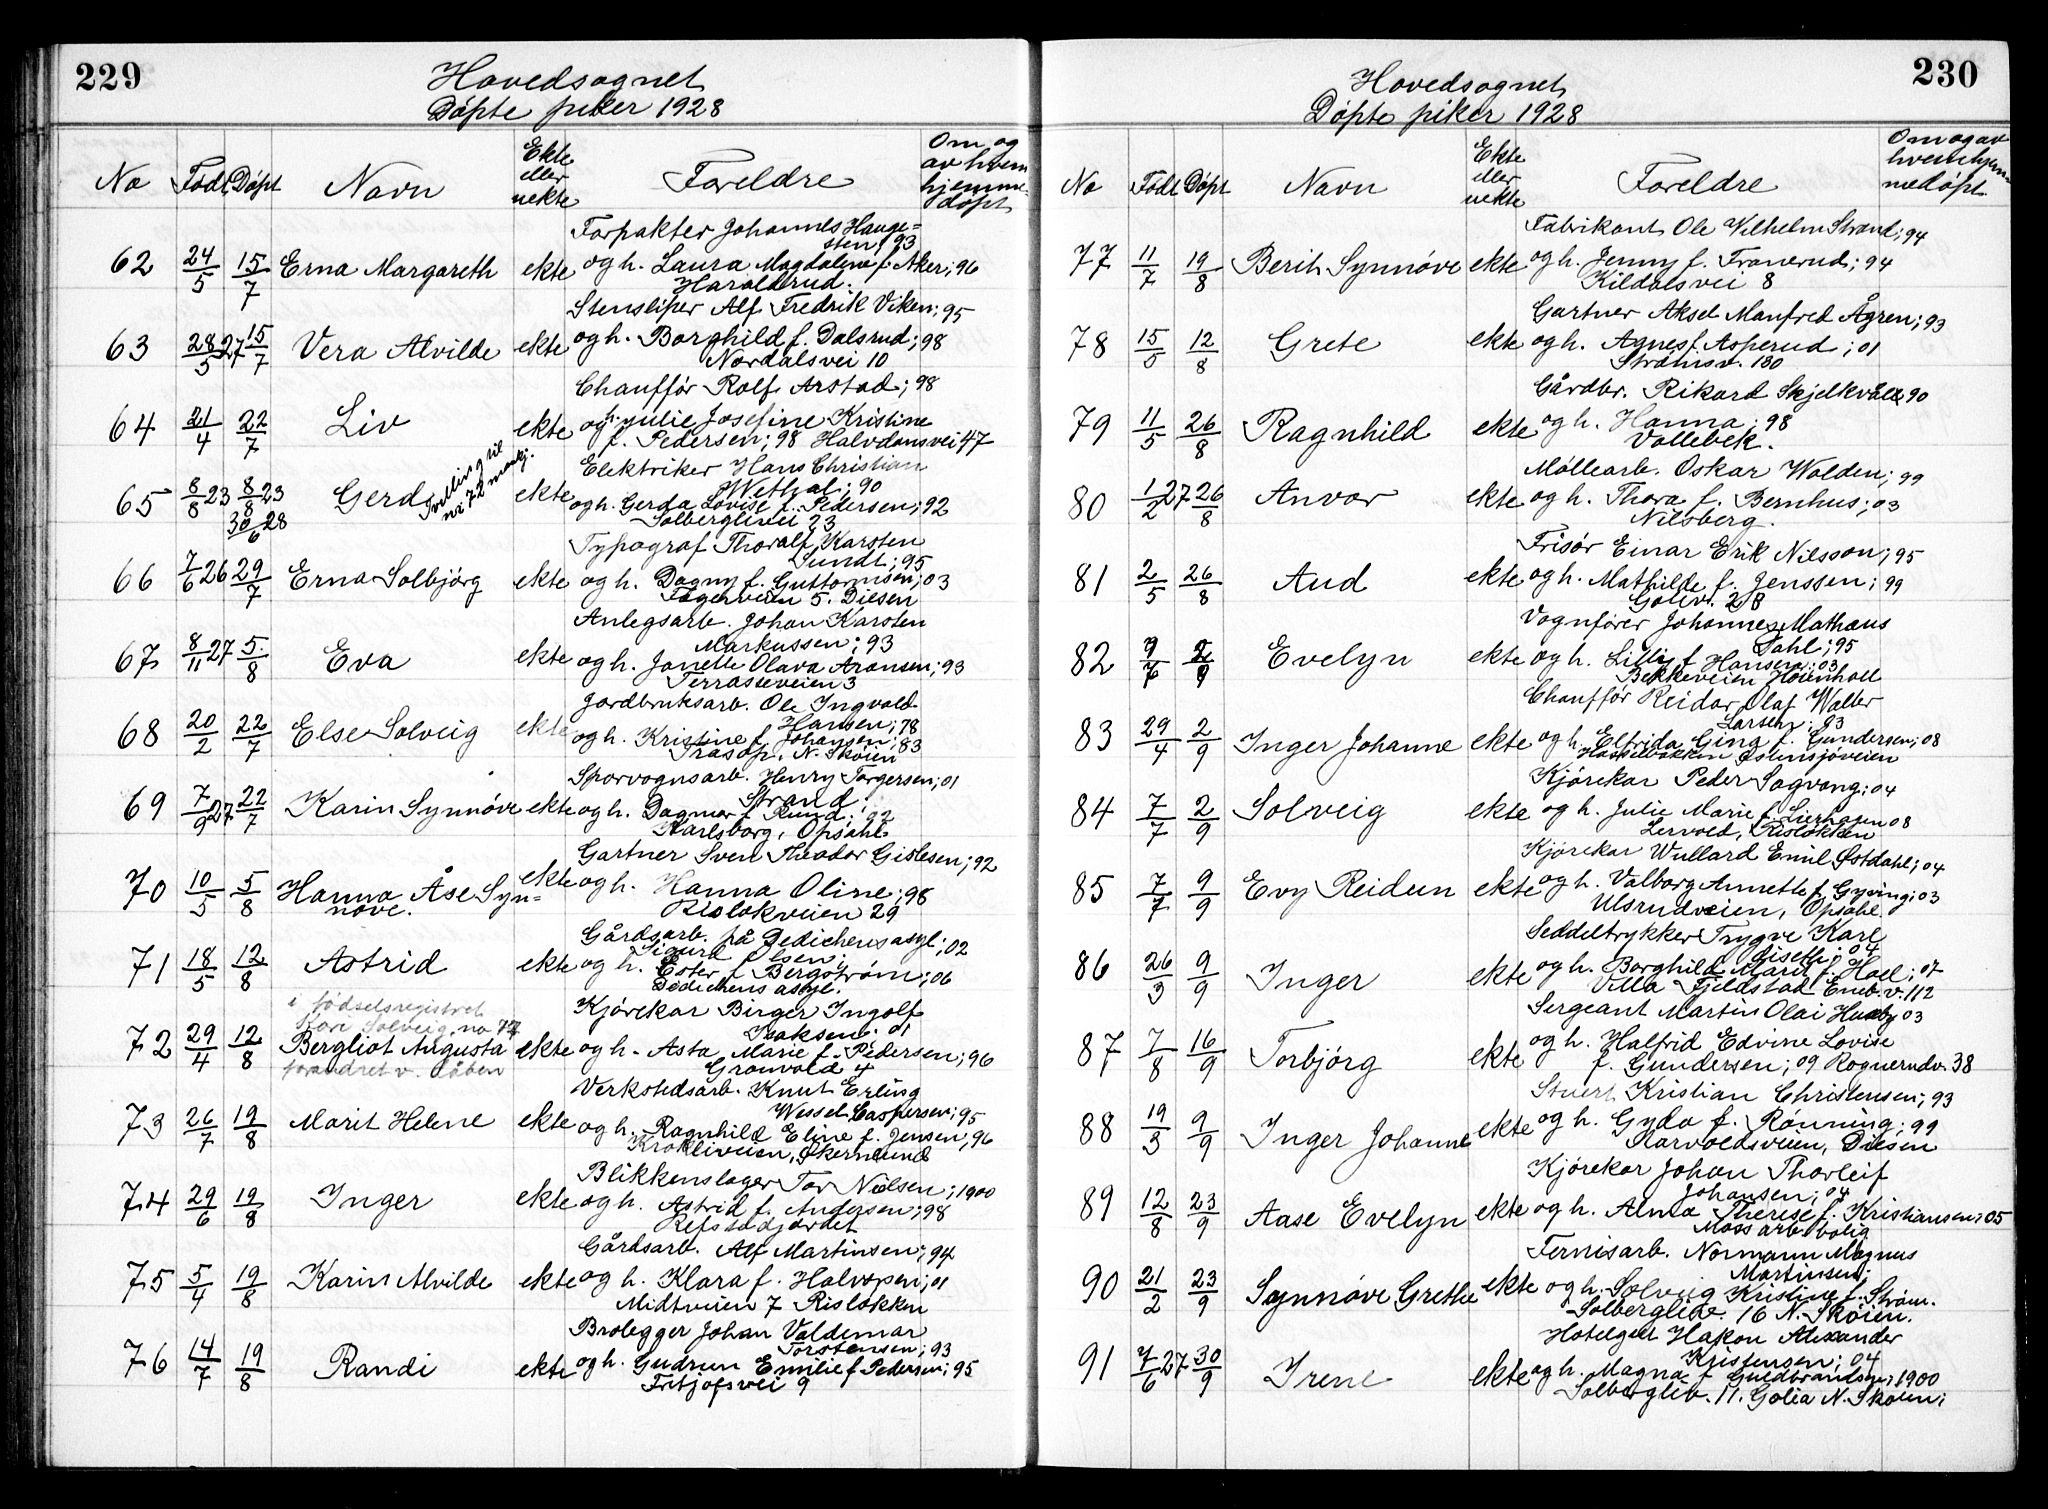 229
Hovedsognet
Døpte piker 1928
No Født Døpt Navn Ekte eller uekte Foreldre Om og av hvem hjemmedøpt
Forpakter Johannes Hauge=
sten; 93
62 24/5 15/7 Erna Margareth ekte og h. Laura Magdalena f. Aker; 96
Haraldrud.
Stensliper Alf Fredrik Viken; 95
63 28/5 27 15/7 Vera Alvilde ekte og h. Borghild f. Dalsrud; 98
Nordalsvei 10
Chauffør Rolf Arstad; 98
64 21/4 22/7 Liv ekte og h. Julie Josefine Kristine
f. Pedersen; 98 Halvdansvei 47
Elektriker Hans Christian
Wethal; 90
65 8/8 23 8/8 23 Gerd ekte og h. Gerda Lovise f. Pedersen; 92
30/6 28 Solberglivei 23
Typograf Thoralf Karsten
Sundt; 95
66 7/6 26 29/7 Erna Solbjørg ekte og h. Dagny f. Guttormsen; 03
Fagerveien 5. Disen
Anlegsarb. Johan Karsten
Markussen; 93
67 8/11 27 5/8 Eva ekte og h. Janette Olava Aronsen; 93
Terrasseveien 3
Jordbruksarb. Ole Ingvald
Hansen; 78
68 20/2 22/7 Else Solveig ekte og h. Kristine f. Johansen; 83
Trasop, N. Skøien
Sporvognsarb. Henry Torgersen; 01
Strand
69 7/9 27 22/7 Karin Synnøve ekte og h. Dagmar f. Rund; 92
Karlsborg, Opsahl
Gartner Sven Theodor Gislesen; 92
70 10/5 5/8 Hanna Åse Syn= ekte og h. Hanna Oline; 98
nøve. Risløkveien 29
Gårdsarb. på Dedichens asyl; 02
Sigurd Olsen
71 18/5 12/8 Astrid ekte og h. Ester f. Bergstrøm; 06
Dedichens asyl.
i fødselsregistret
Kjørekar Birger Ingolf
Isaksen; 01
72 29/4 12/8 Bergliot Augusta ekte og h. Asta Marie f. Pedersen; 96
forandret v. dåben Grønvold 4
Verkstedsarb. Knut Erling
Wessel Caspersen; 95
73 26/7 19/8 Marit Helene ekte og h. Ragnhild Eline f. Jensen; 96
Krokliveien, Økernlund
Blikkenslager Tor Nielsen; 1900
74 29/6 19/8 Inger ekte og h. Astrid f. Andersen; 98
Refstadjordet
Gårdsarb. Alf Martinsen; 94
75 5/4 19/8 Karin Alvilde ekte og h. Klara f. Halvorsen; 01
Midtveien 7 Risløkken
Brolegger Johan Valdemar
Torstensen; 93
76 14/7 19/8 Randi ekte og h. Gudrun Emilie f. Pedersen; 95
Fritjofsvei 9
230
Hovedsognet
Døpte piker 1928
No Født Døpt Navn Ekte eller uekte Foreldre Om og av hvem hjemmedøpt
Fabrikant Ole Vilhelm Strand; 94
77 11/7 19/8 Berit Synnøve ekte og h. Jenny f. Tranerud; 94
Kildalsvei 8
Gartner Aksel Manfred Ågren; 93
78 15/5 12/8 Grete ekte og h. Agnes f. Asperud; 01
Strømsv. 130
Gårdbr. Rikard Skjelkvåle 90
79 11/5 26/8 Ragnhild ekte og h. Hanna; 98
Vollebek.
Møllearb. Oskar Wolden; 99
80 1/2 27 26/8 Anvor ekte og h. Thora f. Bernhus; 03
Nilsberg.
Frisør Einar Erik Nilsson; 95
81 2/5 26/8 Aud ekte og h. Mathilde f. Jenssen; 99
Goliv. 2 B
Vognfører Johannes Mathæus
Dahl; 95
82 7/7 2/9 Evelyn ekte og h. Lilly f. Hansen; 03
Bekkeveien
Chauffør Reidar Olaf Walter
Larsen; 93
83 29/4 2/9 Inger Johanne ekte og h. Elfrida Gina f. Gundersen; 08
Hasselbakken Østensjøveien
Kjørekar Peder Sagvang; 04
84 7/7 2/9 Solveig ekte og h. Julie Marie f. Lierhagen 08
Lervold, Risløkken
Kjørekar Wullard Emil Østdahl; 04
85 7/7 9/9 Evy Reidun ekte og h. Valborg Annette f. Gyving; 03
Ulsrudveien, Opsahl.
Seddeltrykker Trygve Karl
04
86 26/3 9/9 Inger ekte og h. Borghild Marit f. Hoel; 07
Villa Fjeldstad Eneb.v. 112
Sergeant Martin Olai Huseby 03
87 7/8 16/9 Torbjørg ekte og h. Halfrid Edvine Lovise
f. Gundersen; 09 Rognerudv. 38
Stuert Kristian Christensen; 93
88 19/3 9/9 Inger Johanne ekte og h. Gyda f. Rønning; 99
Karvoldsveien, Disen
Kjørekar Johan Thorleif
Johansen; 04
89 12/8 23/9 Aase Evelyn ekte og h. Alma Therese f. Kristiansen; 05
Moss arb. bolig
Fernisarb. Normann Magnus
Martinsen;
90 21/2 23/9 Synnøve Grethe ekte og h. Solveig Kristine f. Strøm.
Solbergliv. 16 N. Skøien.
Hotelgut Hakon Alexander
Kristensen; 04
91 7/6 27 30/9 Irene ekte og h. Magna f. Guldbrandsen; 1900
Solbergliv. 11. Golia N. Skøien;